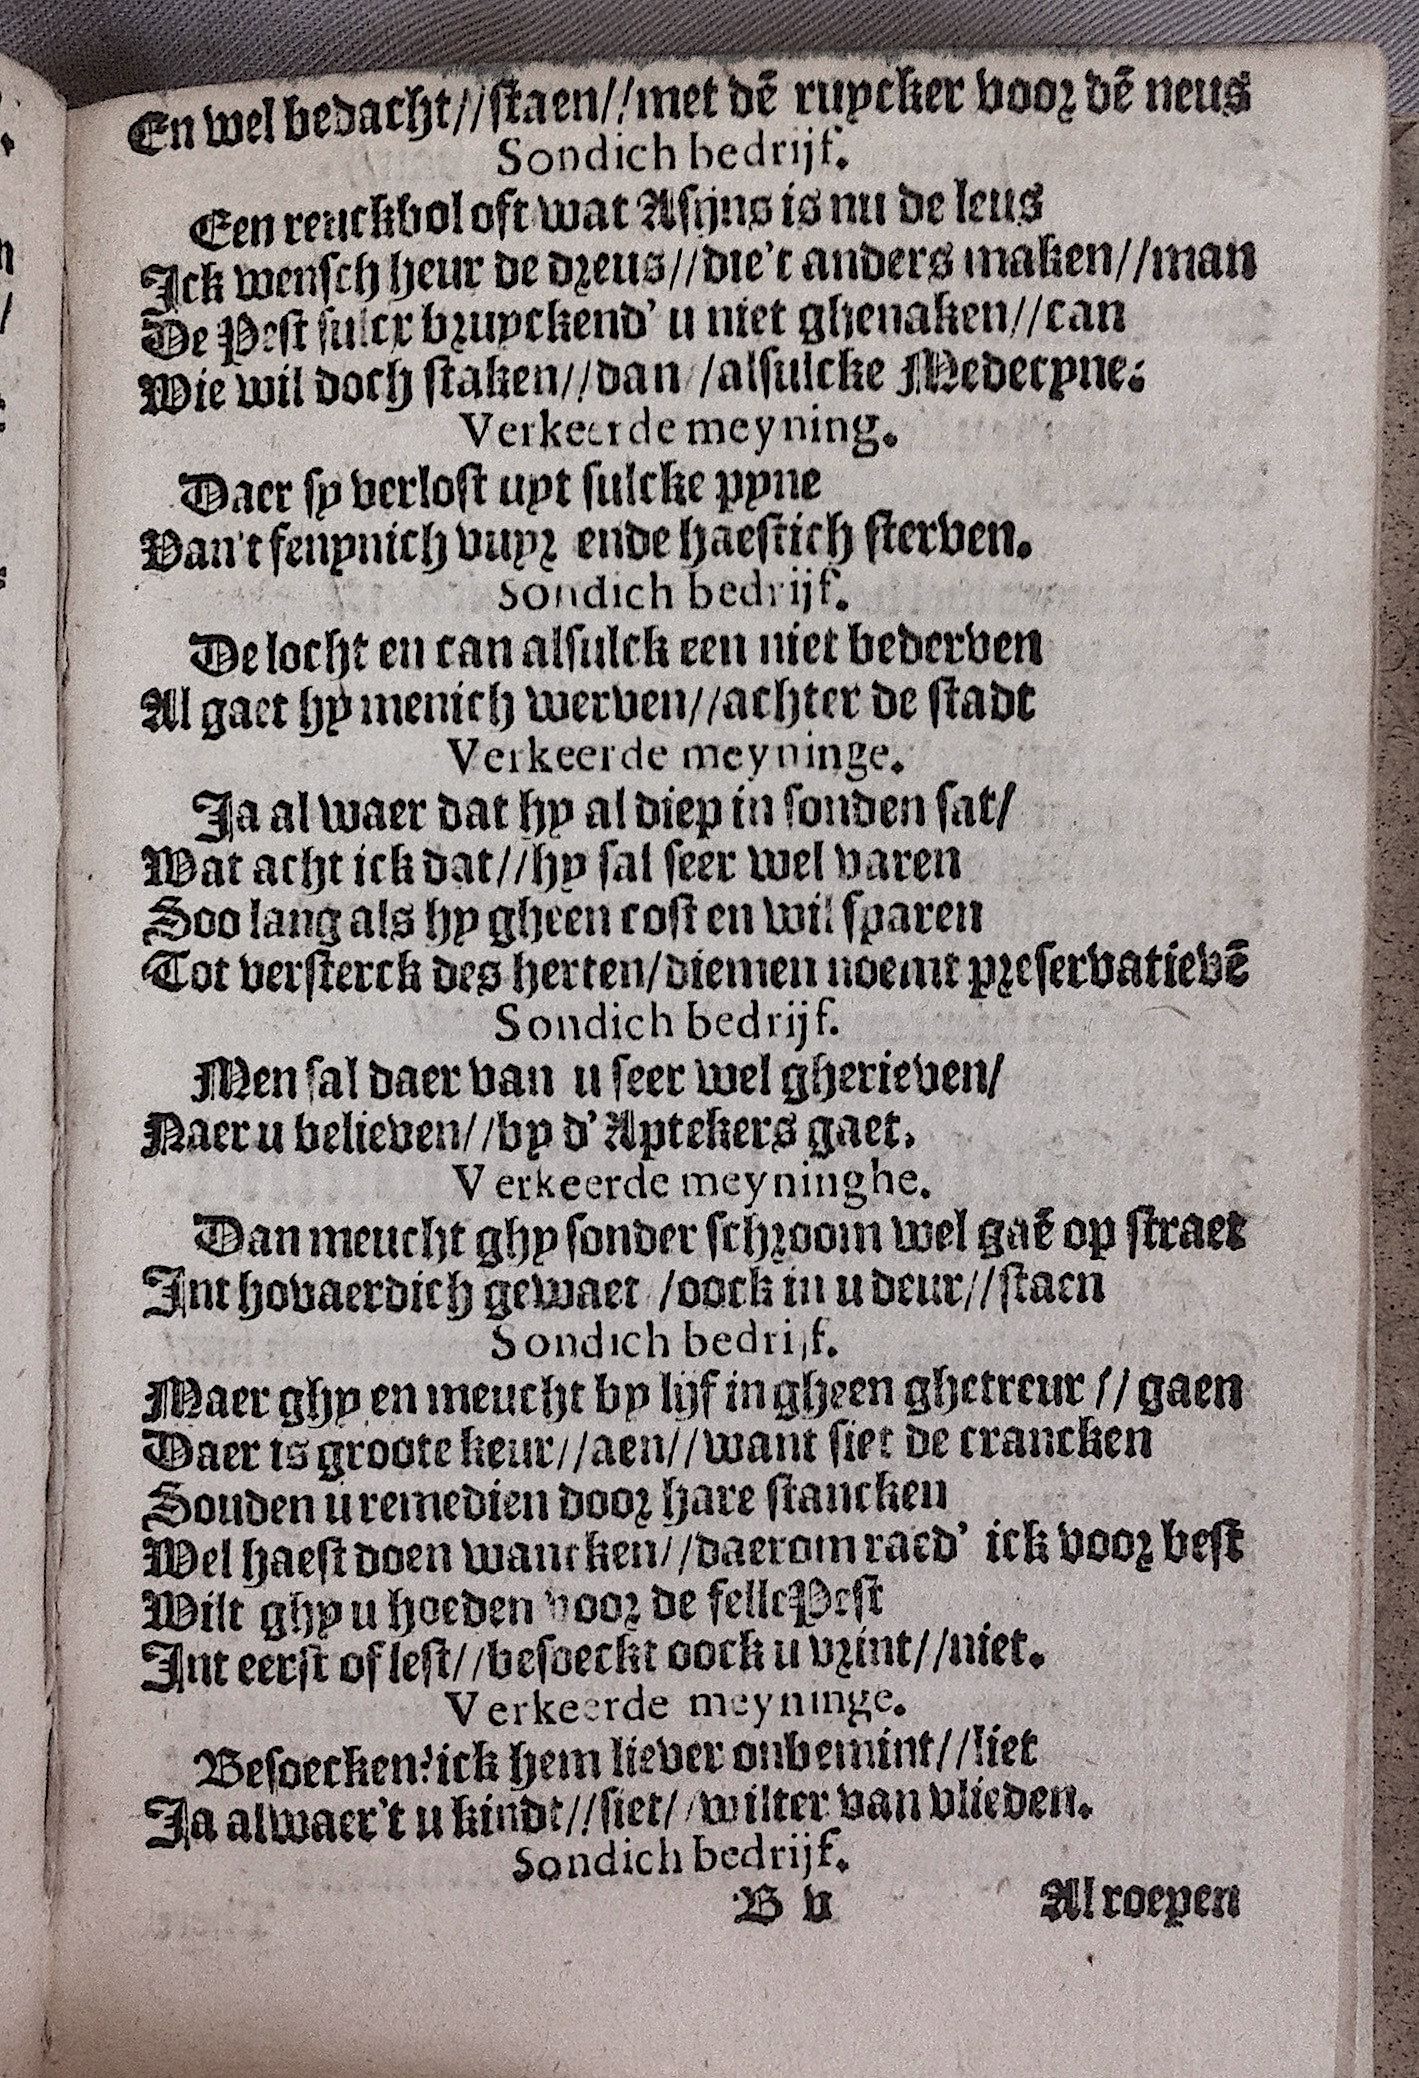 En wel bedacht//staen//met dē ruycker voor dē neus
Sondich bedrijf.
Een reuckbol oft wat Asijns is nu de leus
Ick wensch heur de dreus//die't anders maken//man
De Pest sulcx bruyckend' u niet ghenaken//can
Wie wil doch staken//dan/alsulcke Medecyne:
Verkeerde meyning.
Daer sy verlost uyt sulcke pyne
Van't fenynich vuyr ende haestich sterven.
Sondich bedrijf.
De locht en can alsulck een niet bederven
Al gaet hy menich werven//achter de stadt
Verkeerde meyninge.
Ja al waer dat hy al diep in sonden sat/
Wat acht ick dat//hy sal seer wel varen
Soo lang als hy gheen cost en wil sparen
Tot versterck des herten/diemen noemt preservatievē
Sondich bedrijf.
Men sal daer van u seer wel gherieven/
Naer u believen//by d'Aptekers gaet.
Verkeerde meyninghe.
Dan meucht ghy sonder schroom wel gaē op straet
Int hovaerdich gewaet/oock in u deur//staen
Sondich bedrijf.
Maer ghy en meucht by lijf in gheen ghetreur//gaen
Daer is groote keur//aen//want siet de crancken
Souden u remedien door hare stancken
Wel haest doen wancken//daerom raed' ick voor best
Wilt ghy u hoeden voor de felle Pest
Int eerst of lest//besoeckt oock u vrint//niet.
Verkeerde meyninge.
Besoecken? ick hem liever onbemint//liet
Ja alwaer't u kindt//siet//wilter van vlieden.
Sondich bedrijf.
B v Al roepen